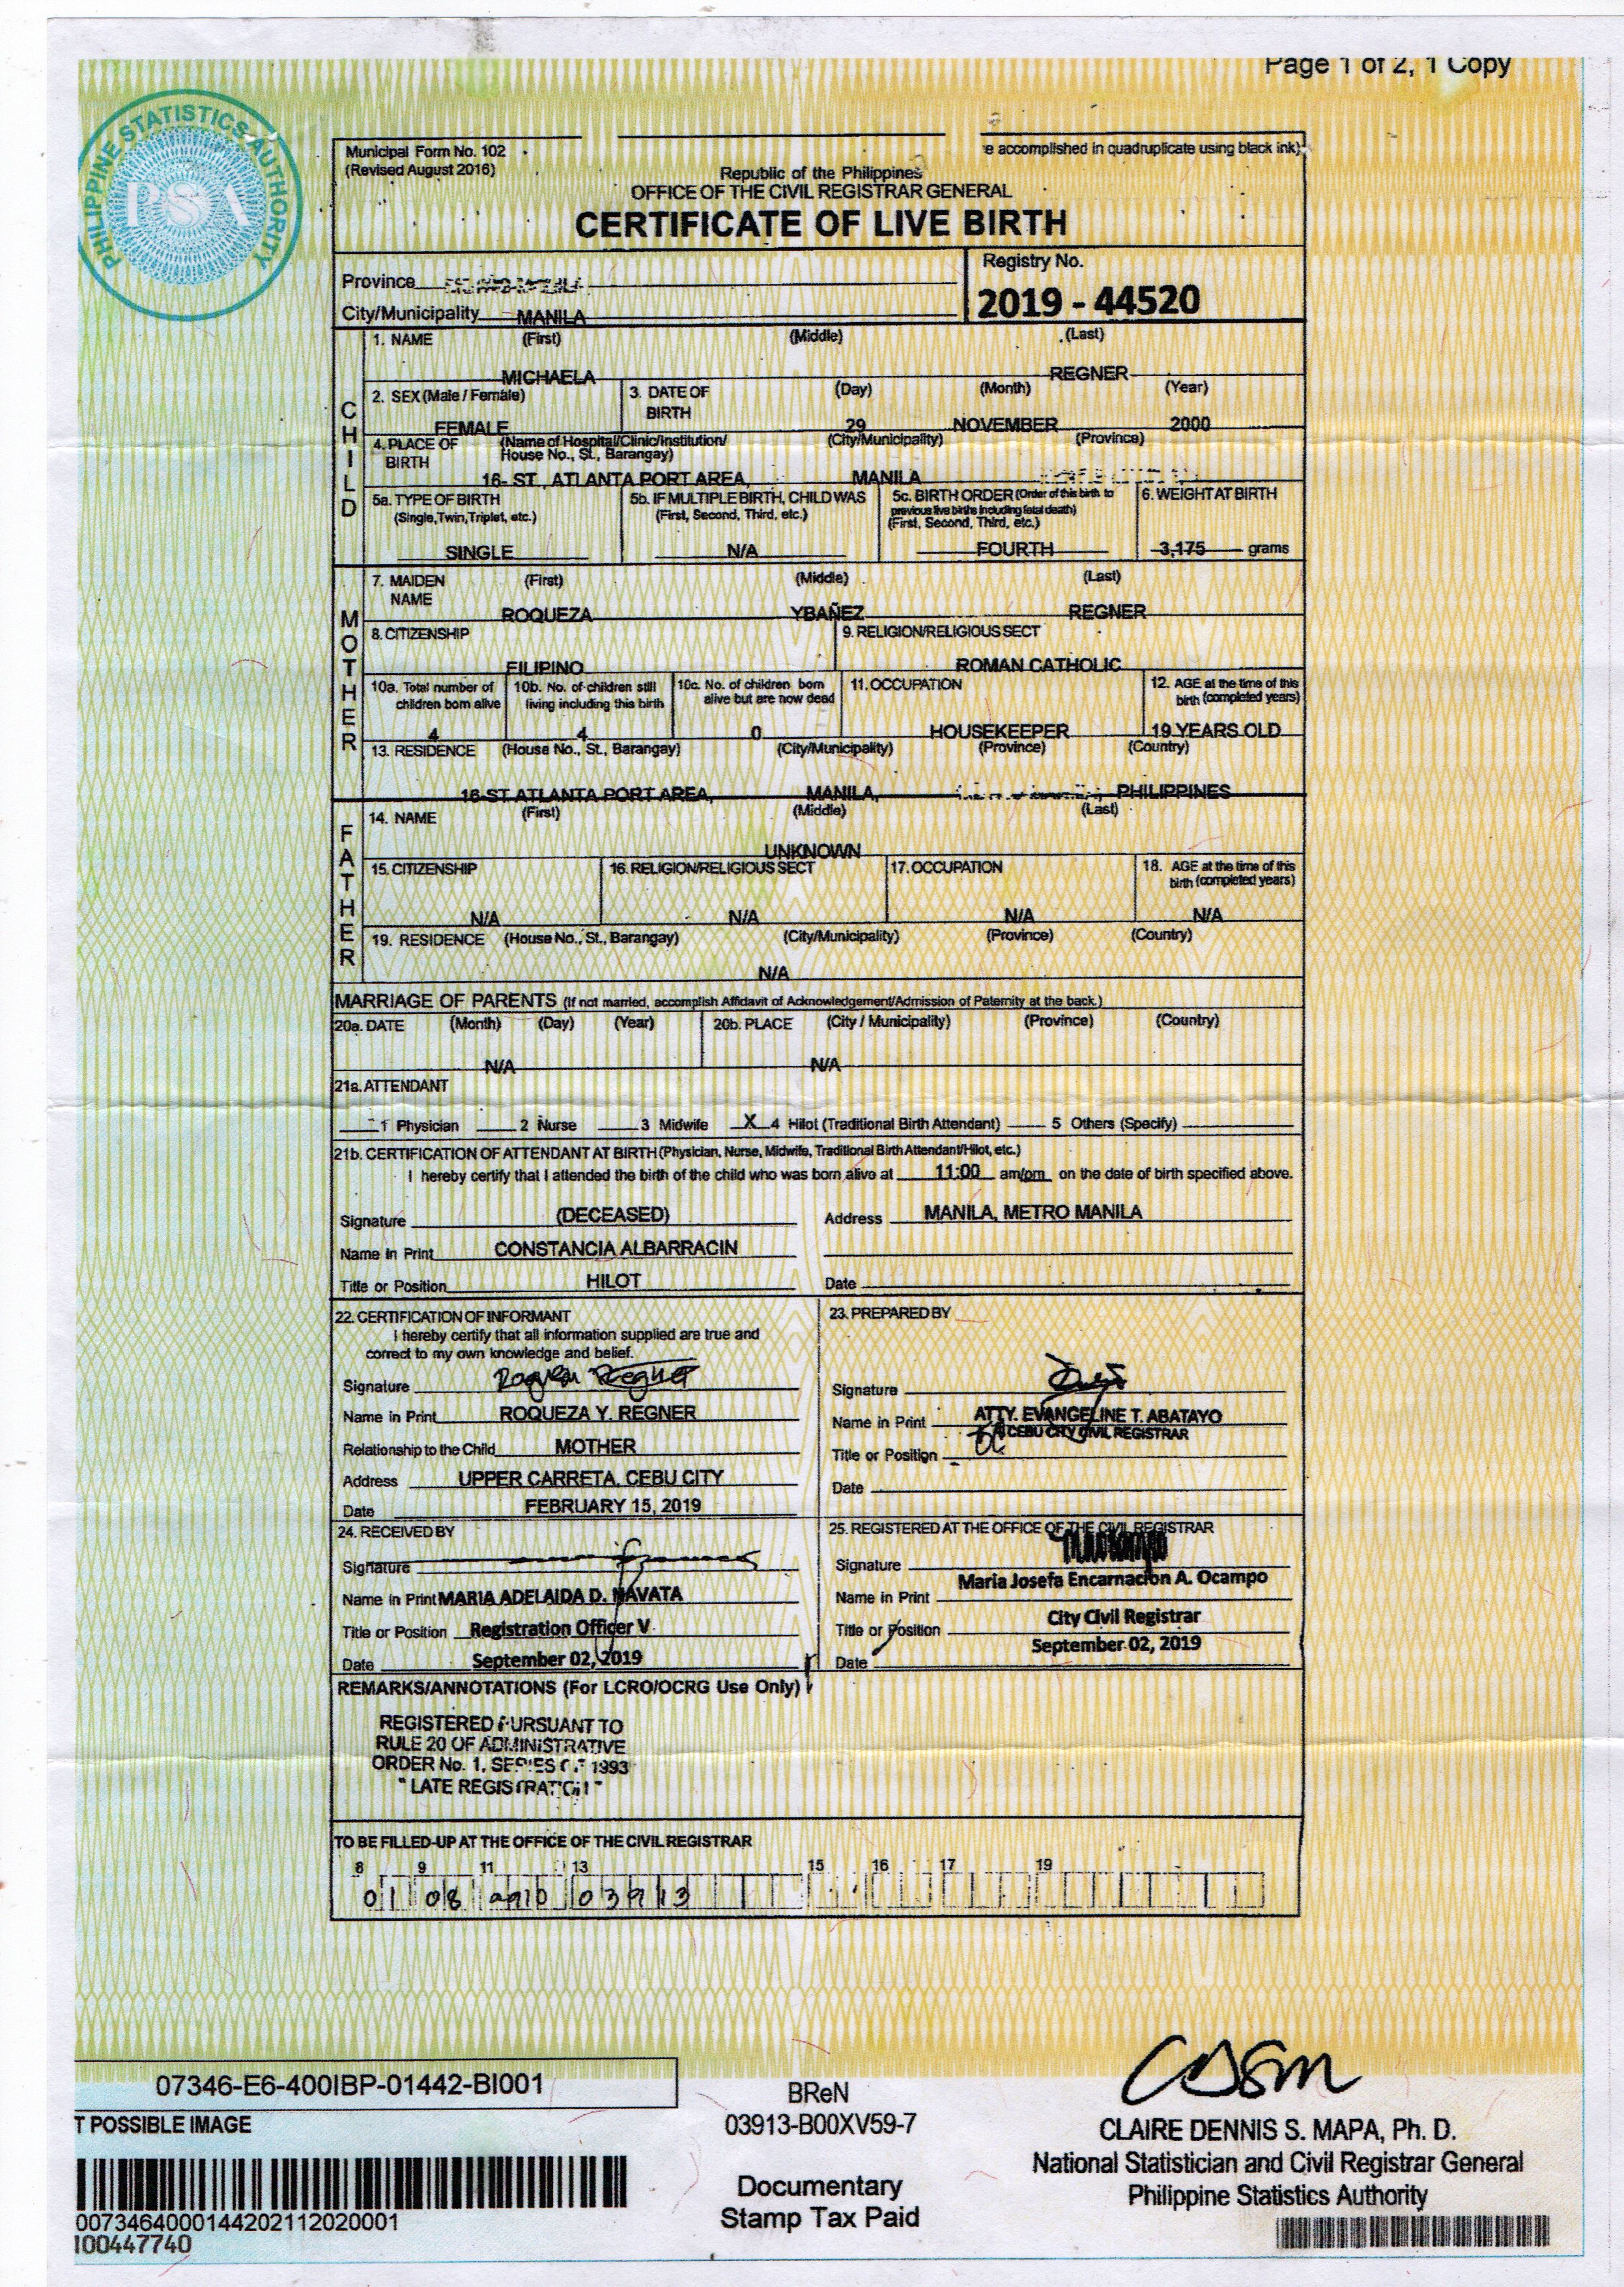 Page 1 of 2, 1 Copy
PHILIPPINE STATISTICS AUTHORITY
PSA
Municipal Form No. 102
(Revised August 2016)
e accomplished in quadruplicate using black ink)
Republic of the Philippines
OFFICE OF THE CIVIL REGISTRAR GENERAL
CERTIFICATE OF LIVE BIRTH
Province
Registry No.
City/Municipality MANILA
2019 - 44520
CHILD
1. NAME (First) (Middle) (Last)
MICHAELA REGNER
2. SEX (Male / Female) 3. DATE OF BIRTH (Day) (Month) (Year)
FEMALE 29 NOVEMBER 2000
4. PLACE OF BIRTH (Name of Hospital/Clinic/Institution/ House No., St., Barangay) (City/Municipality) (Province)
16- ST , ATLANTA PORT AREA, MANILA
5a. TYPE OF BIRTH (Single, Twin, Triplet, etc.) 5b. IF MULTIPLE BIRTH, CHILD WAS (First, Second, Third, etc.) 5c. BIRTH ORDER (Order of this birth to previous live births including fetal death) (First, Second, Third, etc.) 6. WEIGHT AT BIRTH
SINGLE N/A FOURTH 3,175 grams
MOTHER
7. MAIDEN NAME (First) (Middle) (Last)
ROQUEZA YBAÑEZ REGNER
8. CITIZENSHIP 9. RELIGION/RELIGIOUS SECT
FILIPINO ROMAN CATHOLIC
10a. Total number of children born alive 10b. No. of children still living including this birth 10c. No. of children born alive but are now dead 11. OCCUPATION 12. AGE at the time of this birth (completed years)
4 4 0 HOUSEKEEPER 19 YEARS OLD
13. RESIDENCE (House No., St., Barangay) (City/Municipality) (Province) (Country)
16-ST ATLANTA PORT AREA, MANILA, PHILIPPINES
FATHER
14. NAME (First) (Middle) (Last)
UNKNOWN
15. CITIZENSHIP 16. RELIGION/RELIGIOUS SECT 17. OCCUPATION 18. AGE at the time of this birth (completed years)
N/A N/A N/A N/A
19. RESIDENCE (House No., St., Barangay) (City/Municipality) (Province) (Country)
N/A
MARRIAGE OF PARENTS (If not married, accomplish Affidavit of Acknowledgement/Admission of Paternity at the back.)
20a. DATE (Month) (Day) (Year) 20b. PLACE (City / Municipality) (Province) (Country)
N/A N/A
21a. ATTENDANT
1 Physician 2 Nurse 3 Midwife X 4 Hilot (Traditional Birth Attendant) 5 Others (Specify)
21b. CERTIFICATION OF ATTENDANT AT BIRTH (Physician, Nurse, Midwife, Traditional Birth Attendant/Hilot, etc.)
I hereby certify that I attended the birth of the child who was born alive at 11:00 am/pm on the date of birth specified above.
Signature (DECEASED) Address MANILA, METRO MANILA
Name in Print CONSTANCIA ALBARRACIN
Title or Position HILOT Date
22. CERTIFICATION OF INFORMANT
I hereby certify that all information supplied are true and
correct to my own knowledge and belief.
Signature
Name in Print ROQUEZA Y. REGNER
Relationship to the Child MOTHER
Address UPPER CARRETA, CEBU CITY
Date FEBRUARY 15, 2019
23. PREPARED BY
Signature
Name in Print ATTY. EVANGELINE T. ABATAYO
CEBU CITY CIVIL REGISTRAR
Title or Position
Date
24. RECEIVED BY
Signature
Name in Print MARIA ADELAIDA D. NAVATA
Title or Position Registration Officer V
Date September 02, 2019
25. REGISTERED AT THE OFFICE OF THE CIVIL REGISTRAR
Signature
Maria Josefa Encarnacion A. Ocampo
Name in Print
City Civil Registrar
Title or Position
September 02, 2019
Date
REMARKS/ANNOTATIONS (For LCRO/OCRG Use Only)
REGISTERED PURSUANT TO
RULE 20 OF ADMINISTRATIVE
ORDER No. 1, SERIES OF 1993
" LATE REGISTRATION "
TO BE FILLED-UP AT THE OFFICE OF THE CIVIL REGISTRAR
8 9 11 13 15 16 17 19
01 08 03913
07346-E6-400IBP-01442-BI001
T POSSIBLE IMAGE
0073464000144202112020001
100447740
BReN
03913-B00XV59-7
Documentary
Stamp Tax Paid
CLAIRE DENNIS S. MAPA, Ph. D.
National Statistician and Civil Registrar General
Philippine Statistics Authority